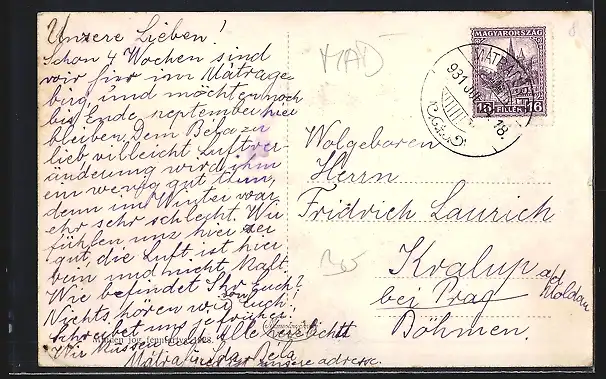 Unsere Lieben!
Schon 4 Wochen sind
wir hier im Mátrage-
birg und möchten noch
bis Ende september hier
bleiben. Dem Bela zu
lieb, villeicht Luftver-
änderung wird ihm
ein wenig gut tun,
denn im Winter war
ehr sehr schlecht. Wir
fühlen uns hier ser
gut, die Luft ist hier
rein und nicht kalt.
Wie befindet Ihr Euch?
Nichts hören wir von Euch!
Schreibet uns
Wir küssen Euch alle herzlichst
Ida Bela
unsere adresse.
MAGYARORSZÁG
16 FILLÉR 16
931
18.
Wolgeboren
Herrn
Fridrich Laurich
Kralup a/d Moldau
bei Prag
Böhmen.